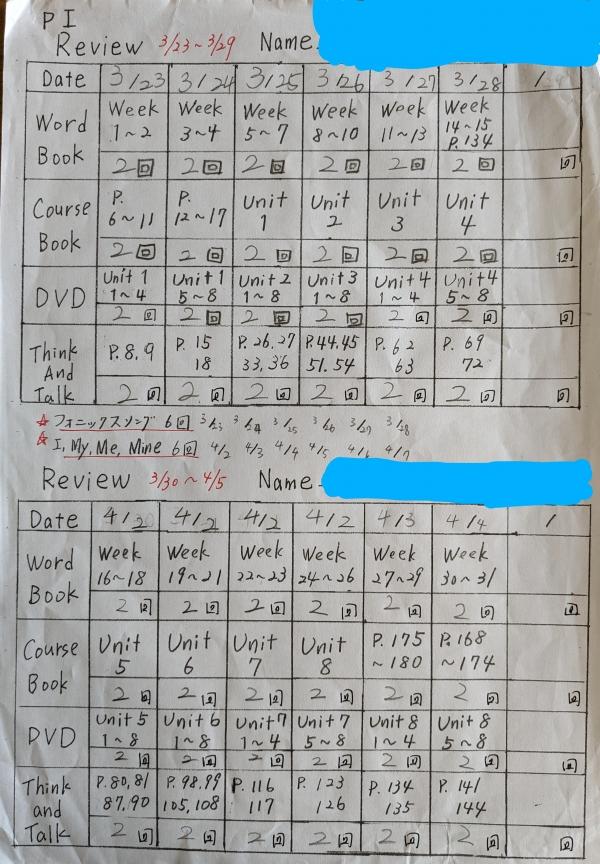 PI
Review 3/23~3/29 Name
Date 3/23 3/24 3/25 3/26 3/27 3/28 /
Word Book Week 1~2 Week 3~4 Week 5~7 Week 8~10 Week 11~13 Week 14~15 P.134
2回 2回 2回 2回 2回 2回 回
Course Book P. 6~11 P. 12~17 Unit 1 Unit 2 Unit 3 Unit 4
2回 2回 2回 2回 2回 2回 回
DVD Unit 1 1~4 Unit 1 5~8 Unit 2 1~8 Unit 3 1~8 Unit 4 1~4 Unit 4 5~8
2回 2回 2回 2回 2回 2回 回
Think And Talk P.8,9 P. 15 18 P.26,27 33,36 P.44,45 51,54 P. 62 63 P. 69 72
2回 2回 2回 2回 2回 2回 回
☆ フォニックスソング 6回 3/23 3/24 3/25 3/26 3/27 3/28
☆ I, My, Me, Mine 6回 4/2 4/3 4/4 4/5 4/6 4/7
Review 3/30~4/5 Name
Date 4/2 4/2 4/2 4/2 4/3 4/4 /
Word Book Week 16~18 Week 19~21 Week 22~23 Week 24~26 Week 27~29 Week 30~31
2回 2回 2回 2回 2回 2回 回
Course Book Unit 5 Unit 6 Unit 7 Unit 8 P. 175 ~180 P. 168 ~174
2回 2回 2回 2回 2回 2回 回
DVD Unit 5 1~8 Unit 6 1~8 Unit 7 1~4 Unit 7 5~8 Unit 8 1~4 Unit 8 5~8
2回 2回 2回 2回 2回 2回 回
Think and Talk P.80,81 87,90 P.98,99 105,108 P. 116 117 P. 123 126 P. 134 135 P. 141 144
2回 2回 2回 2回 2回 2回 回